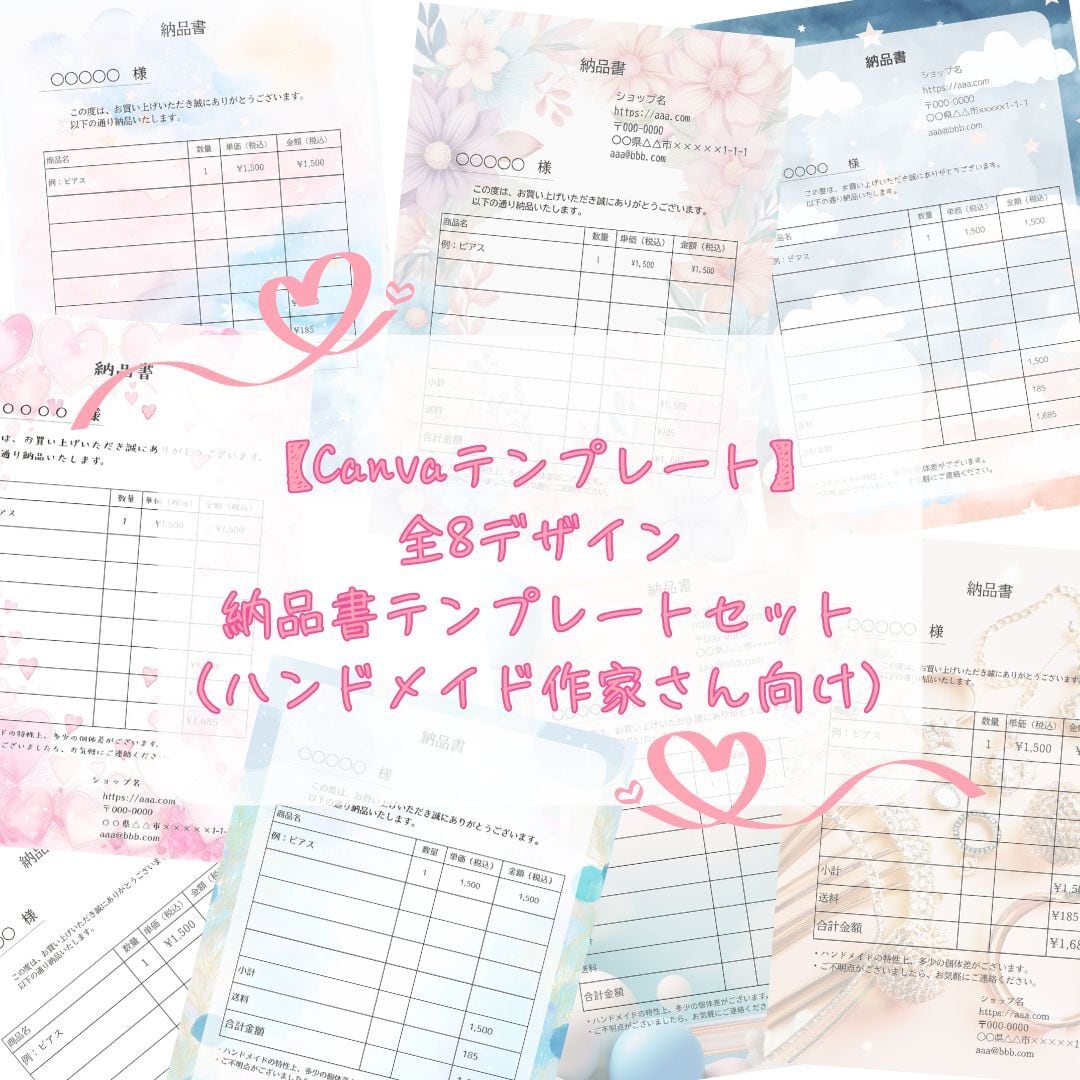 納品書
〇〇〇〇〇 様
この度は、お買い上げいただき誠にありがとうございます。
以下の通り納品いたします。
商品名 数量 単価（税込） 金額（税込）
例：ピアス 1 ¥1,500 ¥1,500
¥185
納品書
ショップ名
https://aaa.com
〒000-0000
〇〇県△△市×××××1-1-1
aaa@bbb.com
〇〇〇〇〇 様
この度は、お買い上げいただき誠にありがとうございます。
以下の通り納品いたします。
商品名 数量 単価（税込） 金額（税込）
例：ピアス 1 ¥1,500 ¥1,500
小計 ¥1,500
送料 ¥185
合計金額 ¥1,685
納品書
ショップ名
https://aaa.com
〒000-0000
〇〇県△△市×××××1-1-1
aaa@bbb.com
〇〇〇〇 様
この度は、お買い上げいただき誠にありがとうございます。
以下の通り納品いたします。
品名 数量 単価（税込） 金額（税込）
例：ピアス 1 1,500 1,500
1,500
185
合計金額 1,685
・ハンドメイドの特性上、多少の個体差がございます。
・ご不明点がございましたら、お気軽にご連絡ください。
納品書
〇〇〇〇〇 様
は、お買い上げいただき誠にありがとうございます。
通り納品いたします。
数量 単価（税込） 金額（税込）
アス 1 ¥1,500 ¥1,500
¥1,685
ドの特性上、多少の個体差がございます。
ございましたら、お気軽にご連絡ください
ショップ名
https://aaa.com
〒000-0000
〇〇県△△市×××××1-1-
aaa@bbb.com
【Canvaテンプレート】
全8デザイン
納品書テンプレートセット
(ハンドメイド作家さん向け)
納品
〇〇 様
この度は、お買い上げいただき誠にありがとうござい
以下の通り納品いたします。
商品名 数量 単価（税込） 金額（
例：ピアス 1 ¥1,500
納品書
〇〇〇〇〇 様
この度は、お買い上げいただき誠にありがとうございます。
以下の通り納品いたします。
数量 単価（税込） 金額（税込）
例：ピアス 1 1,500 1,500
小計
送料 1,500
合計金額 185
・ハンドメイドの特性上、多少の個体差がございます。
・ご不明点がございましたら、お気軽にご連絡くださ
納品書
https://aaa.com
〒000-0000
送料
合計金額
・ハンドメイドの特性上、多少の個体差がございます。
・ご不明点がございましたら、お気軽にご連絡
納品書
〇〇〇〇〇 様
この度は、お買い上げいただき誠にありがとうございます。
以下の通り納品いたします。
数量 単価（税込） 金
1 ¥1,500
小計 ¥1,50
送料 ¥185
合計金額 ¥1,68
・ハンドメイドの特性上、多少の個体差がございます。
・ご不明点がございましたら、お気軽にご連絡ください。
ショップ名
https://aaa.com
〒000-0000
〇〇県△△市×××××1
aaa@bbb.com